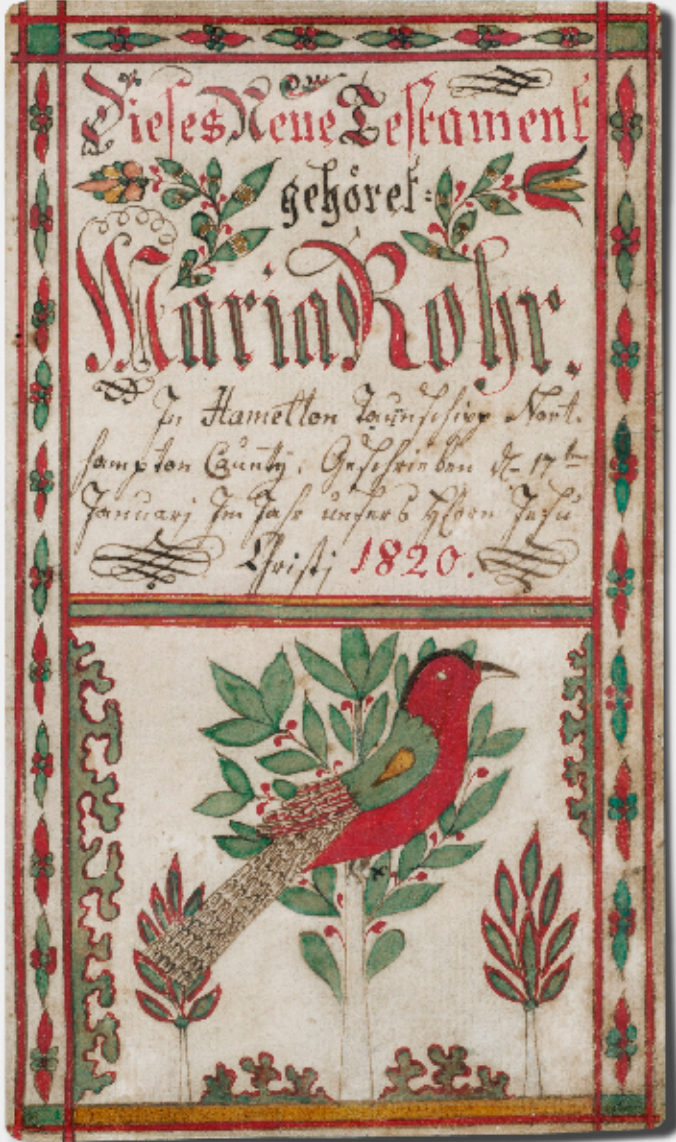 Dieses Neue Testament
gehöret:
Maria Rohr.
In Hamelton Taunschipp Nort-
hampton Caunty. Geschrieben d. 17ten
Januarj Im Jahr unsers HErrn Jesu
Christj 1820.